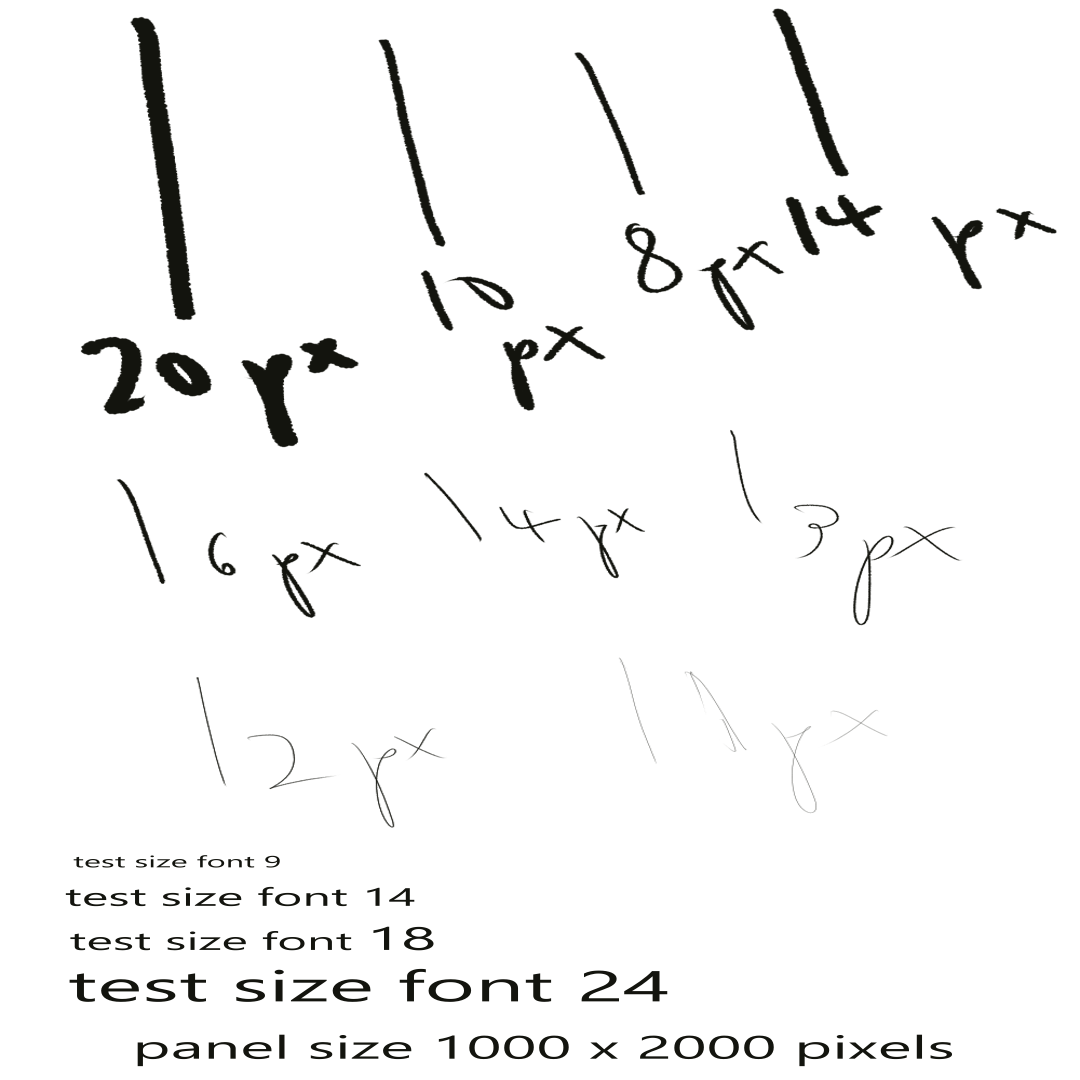 20 px
10 px
8 px
14 px
6 px
4 px
3 px
2 px
px
test size font 9
test size font 14
test size font 18
test size font 24
panel size 1000 x 2000 pixels